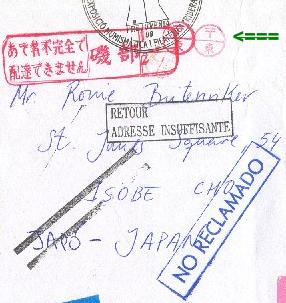 あて名不完全で
配達できません
磯部
Mr. Rome
RETOUR
ADRESSE INSUFFISANTE
St. Square, 54
ISOBE CHO
JAPO - JAPAN
NO RECLAMADO